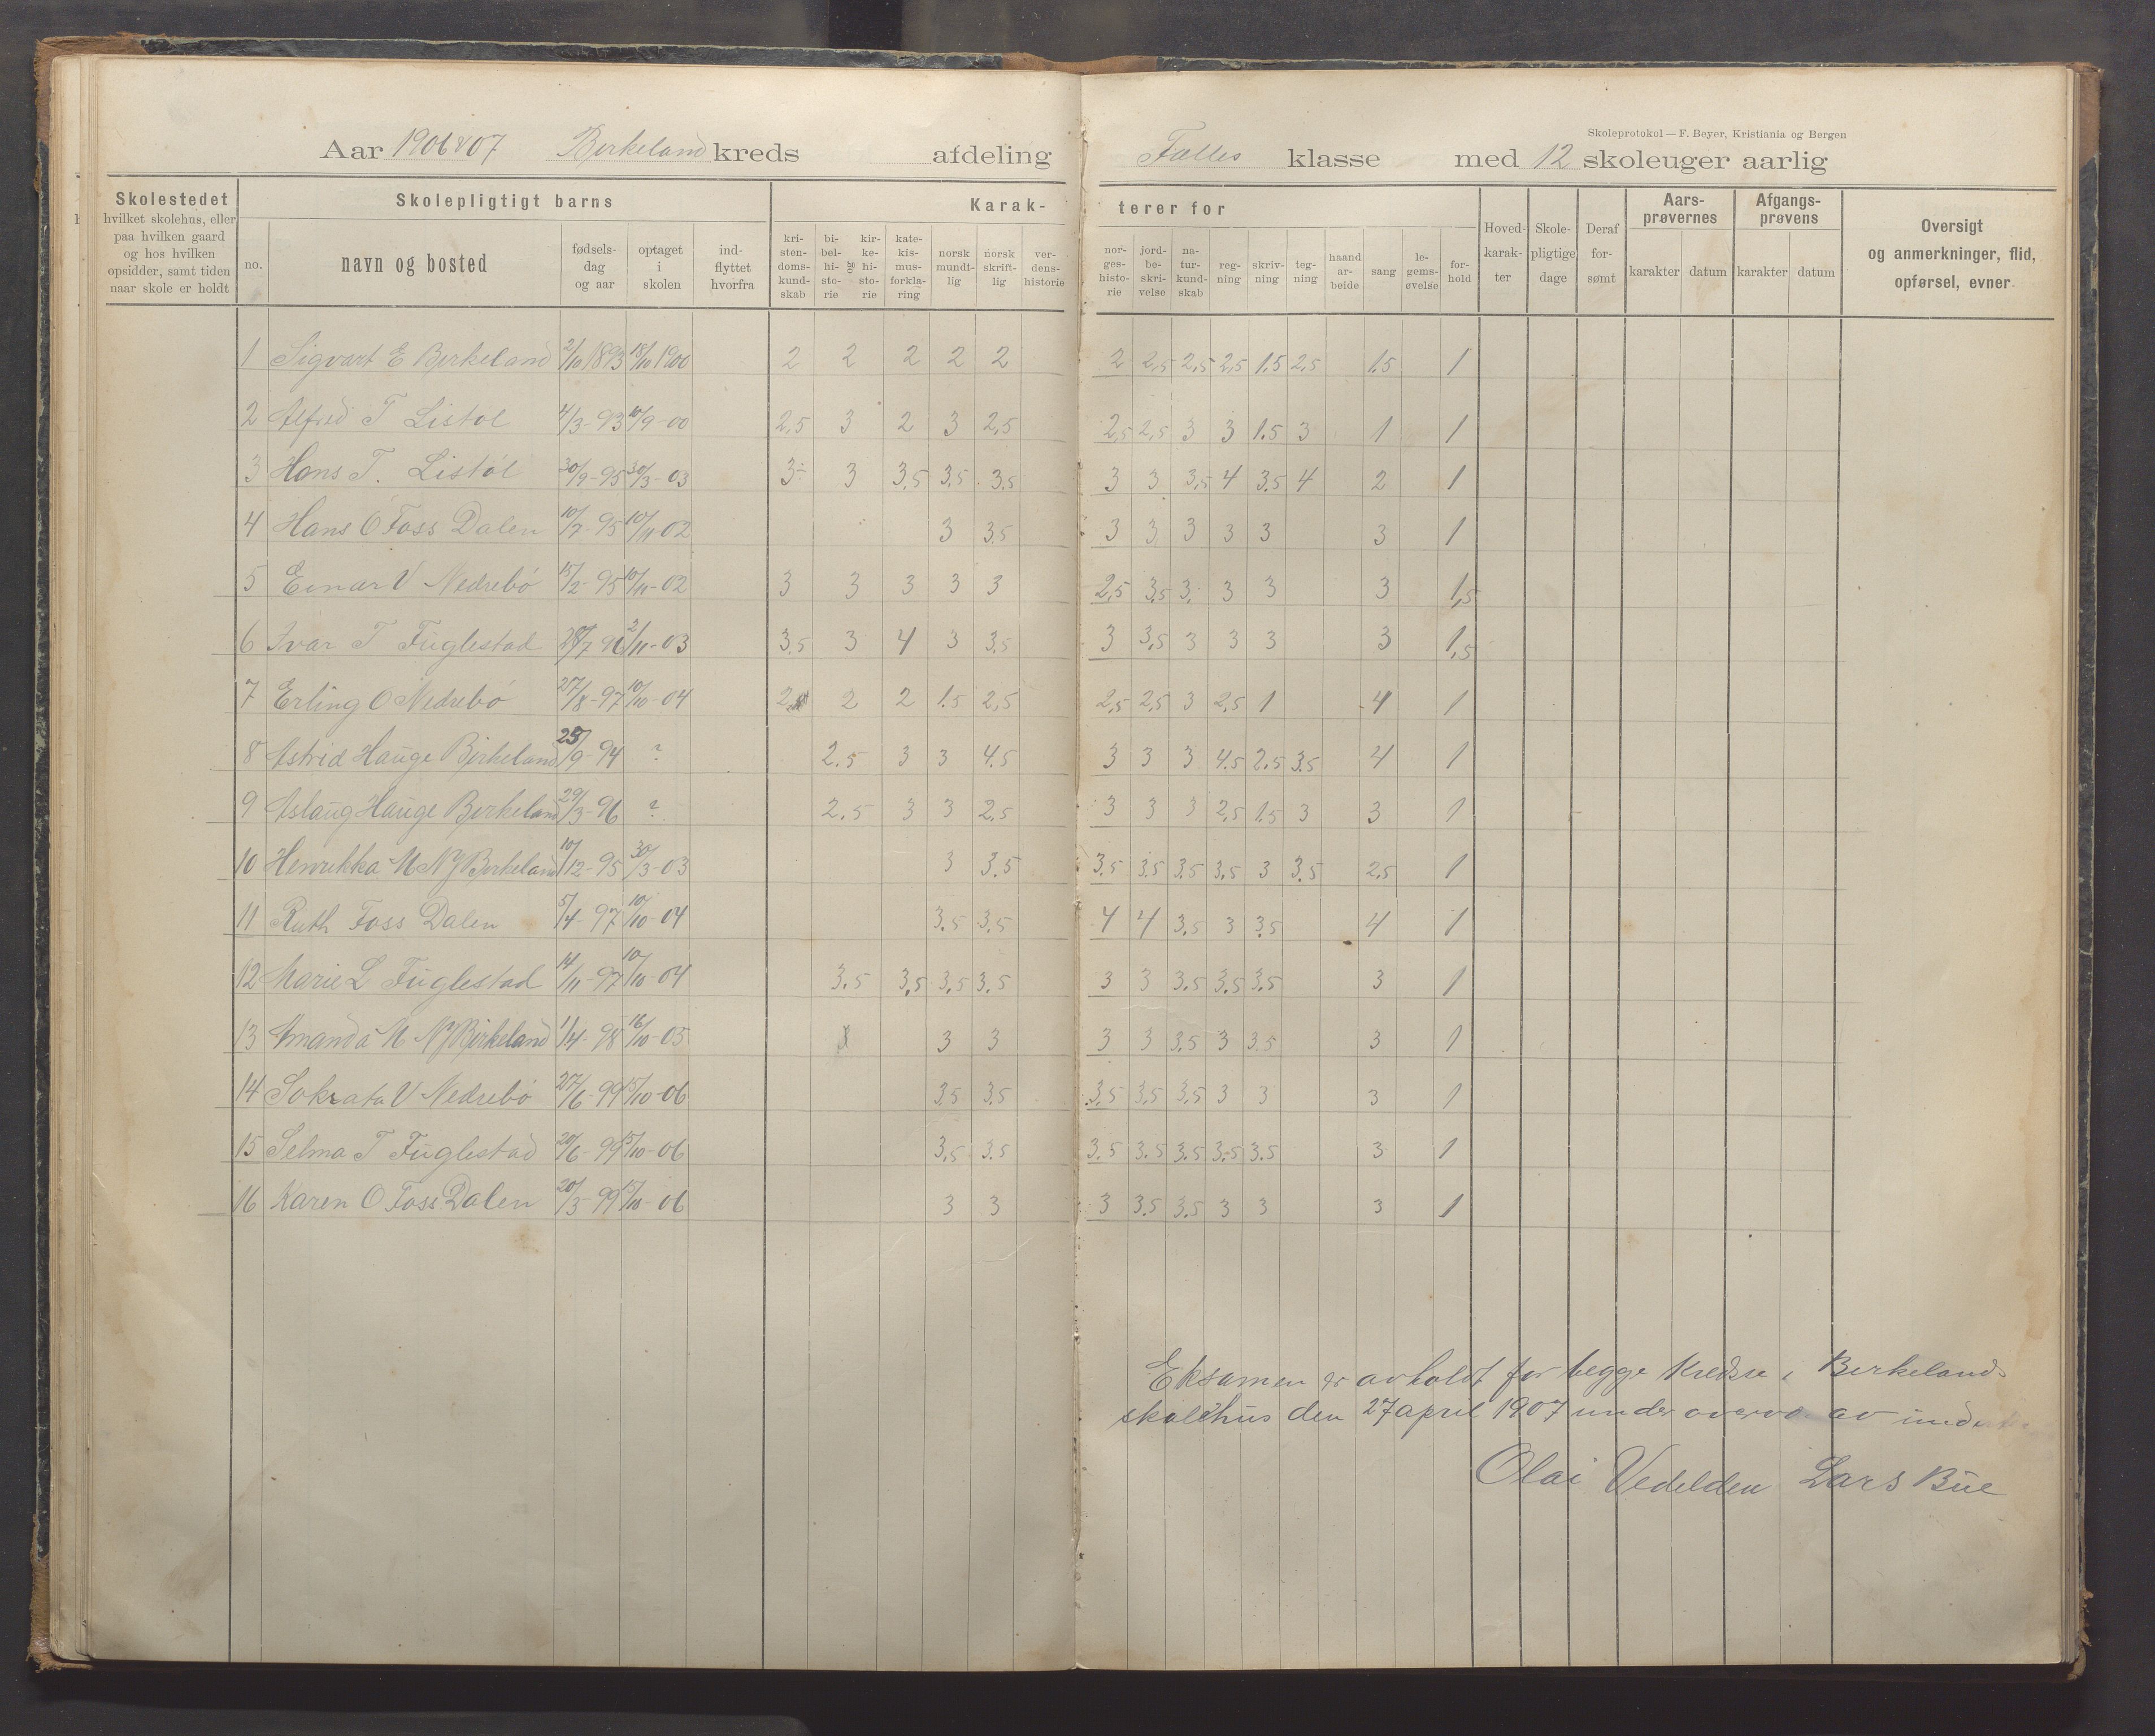 Skoleprotokol — F. Beyer, Kristiania og Bergen
Aar 1906 & 07 Birkeland kreds afdeling Fælles klasse med 12 skoleuger aarlig
Skolestedet hvilket skolehus, eller paa hvilken gaard og hos hvilken opsidder, samt tiden naar skole er holdt
Skolepligtigt barns
no. navn og bosted fødselsdag og aar optaget i skolen indflyttet hvorfra
Karakterer for
kristendomskundskab bibelhistorie og kirkehistorie katekismusforklaring norsk mundtlig norsk skriftlig verdenshistorie norgeshistorie jordbeskrivelse naturkundskab regning skrivning tegning haandarbeide sang legemsøvelse forhold
Hovedkarakter Skolepligtige dage Deraf forsømt
Aarsprøvernes karakter datum
Afgangsprøvens karakter datum
Oversigt og anmerkninger, flid, opførsel, evner
1 Sigvart E Birkeland 2/10 1893 18/10 1900 2 2 2 2 2 2 2,5 2,5 2,5 1.5 2,5 1.5 1
2 Alfred T Listøl 4/3-93 10/9-00 2,5 3 2 3 2,5 2,5 2,5 3 3 1.5 3 1 1
3 Hans T. Listøl 30/9-95 30/3-03 3 3 3,5 3,5 3,5 3 3 3,5 4 3.5 4 2 1
4 Hans O Foss Dalen 10/7-95 10/11-02 3 3.5 3 3 3 3 3 3 1
5 Einar V Nedrebö 15/2-95 10/11-02 3 3 3 3 3 2,5 3,5 3 3 3 3 1,5
6 Ivar T Fuglestad 28/7 96 2/11-03 3,5 3 4 3 3,5 3 3,5 3 3 3 3 1,5
7 Erling O Nedrebö 27/8-97 10/10-04 2 2 2 1.5 2,5 2,5 2,5 3 2,5 1 4 1
8 Astrid Hauge Birkeland 25/9-94 ? 2.5 3 3 4.5 3 3 3 4.5 2.5 3.5 4 1
9 Aslaug Hauge Birkeland 29/3-96 ? 2.5 3 3 2.5 3 3 3 2,5 1.5 3 3 1
10 Henrikka M NJ Birkeland 10/12-95 30/3-03 3 3.5 3.5 3.5 3.5 3,5 3 3.5 2,5 1
11 Ruth Foss Dalen 5/4-97 10/10-04 3.5 3.5 4 4 3,5 3 3,5 4 1
12 Marie L Fuglestad 14/11-97 10/10-04 3.5 3,5 3,5 3.5 3 3 3.5 3.5 3.5 3 1
13 Amanda M NJ Birkeland 1/4-98 16/10-05 3 3 3 3 3,5 3 3.5 3 1
14 Sokrata V Nedrebö 27/6-99 15/10-06 3,5 3.5 3,5 3,5 3,5 3 3 3 1
15 Selma T Fuglestad 20/6-99 15/10-06 3,5 3.5 3.5 3.5 3.5 3.5 3.5 3 1
16 Karen O Foss Dalen 20/3-99 15/10-06 3 3 3 3.5 3.5 3 3 3 1
Eksamen er avholdt for begge Kredse i Birkelands
skolehus den 27 april 1907 under av
Olai Vedelden Lars Bue